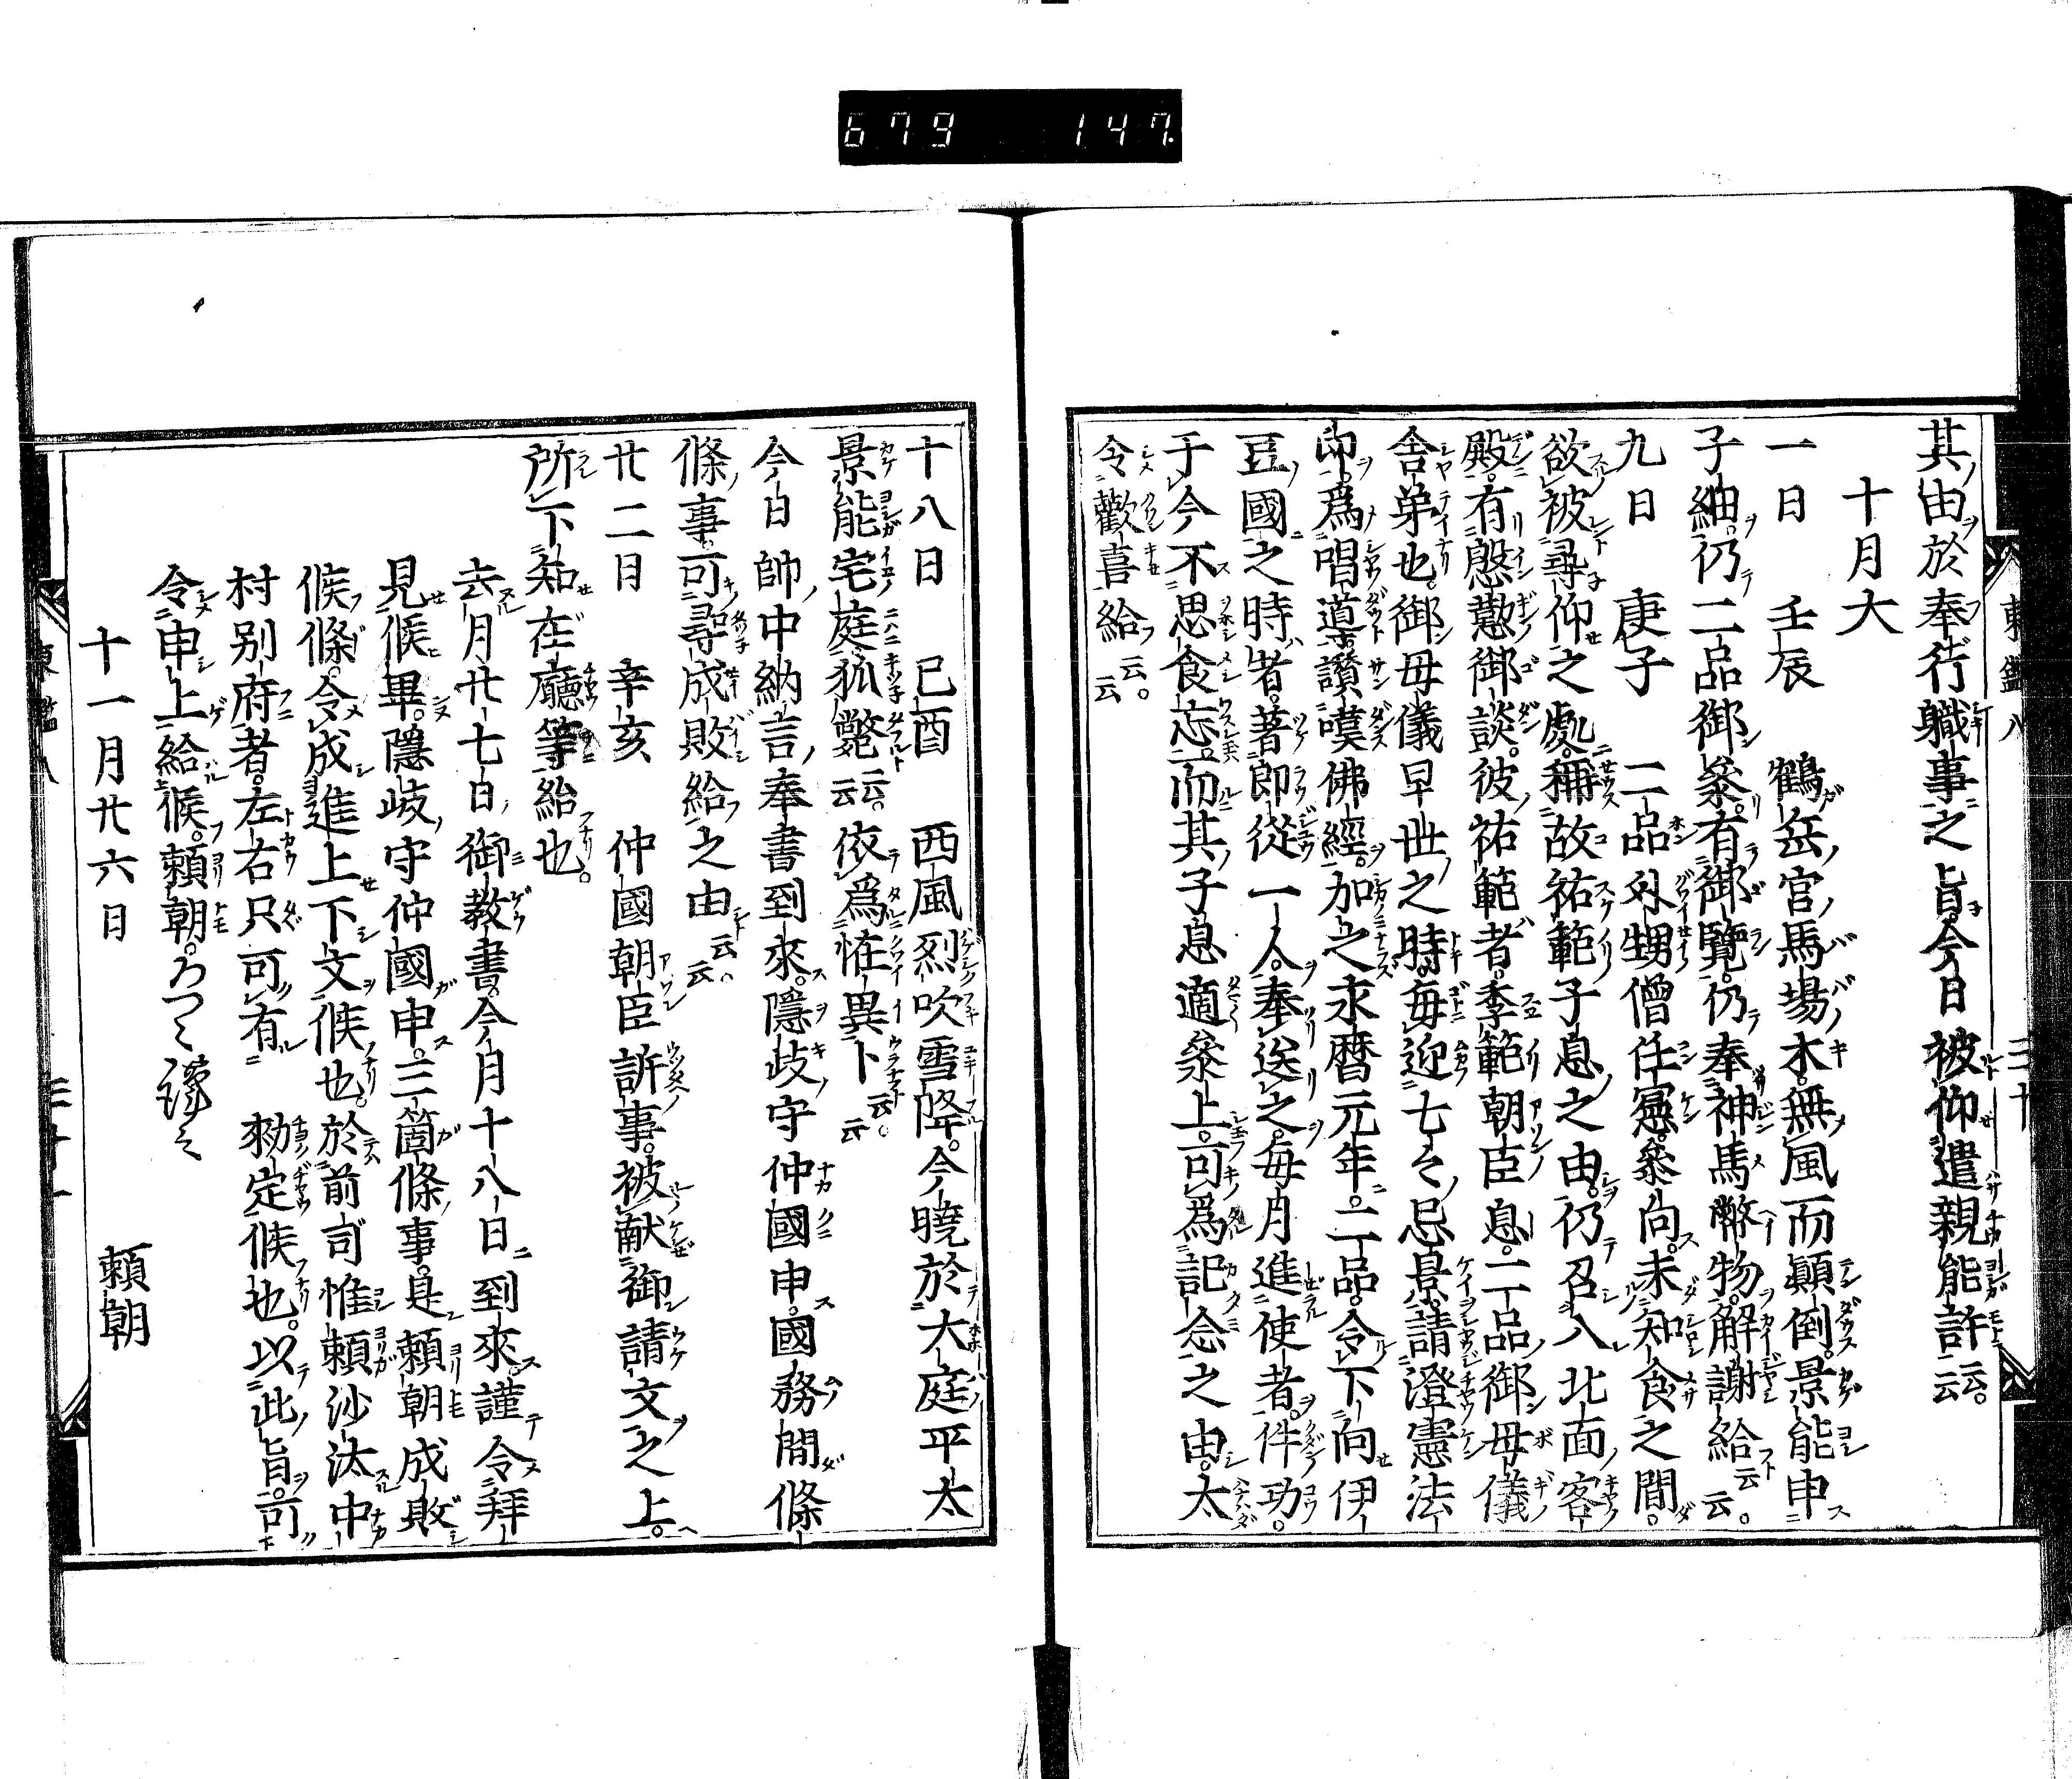 679 147
東鑑八
三十
其由於奉行職事之旨今日被仰遣親能許云云
十月大
一日 壬辰 鶴岳宮馬場木無風而顛倒景能申
子細仍二品御參有御覽仍奉神馬幣物解謝給云云
九日 庚子 二品外甥僧任憲參向未知食之間
欲被尋仰之處稱故祐範子息之由仍召入北面客
殿有慇懃御談彼祐範者季範朝臣息二品御母儀
舍弟也御母儀早世之時每迎七々忌景請澄憲法
印爲唱導讚嘆佛經加之永曆元年二品令下向伊
豆國之時者著郎從一人奉送之每月進使者件功
于今不思食忘而其子息適參上可爲記念之由太
令歡喜給云云
十八日 己酉 西風烈吹雪降今曉於大庭平太
景能宅庭狐斃云云依爲恠異卜云云
今日帥中納言奉書到來隱岐守仲國申國務間條
條事可尋成敗給之由云云
廿二日 辛亥 仲國朝臣訴事被献御請文之上
所下知在廳等給也
去月廿七日御教書今月十八日到來謹令拜
見候畢隱岐守仲國申三箇條事是賴朝成敗
候條令成進上下文候也於前司惟賴沙汰中
村別府者左右只可有 勅定候也以此旨可
令申上給候賴朝恐々謹言
十一月廿六日 賴朝
東鑑八
三十一